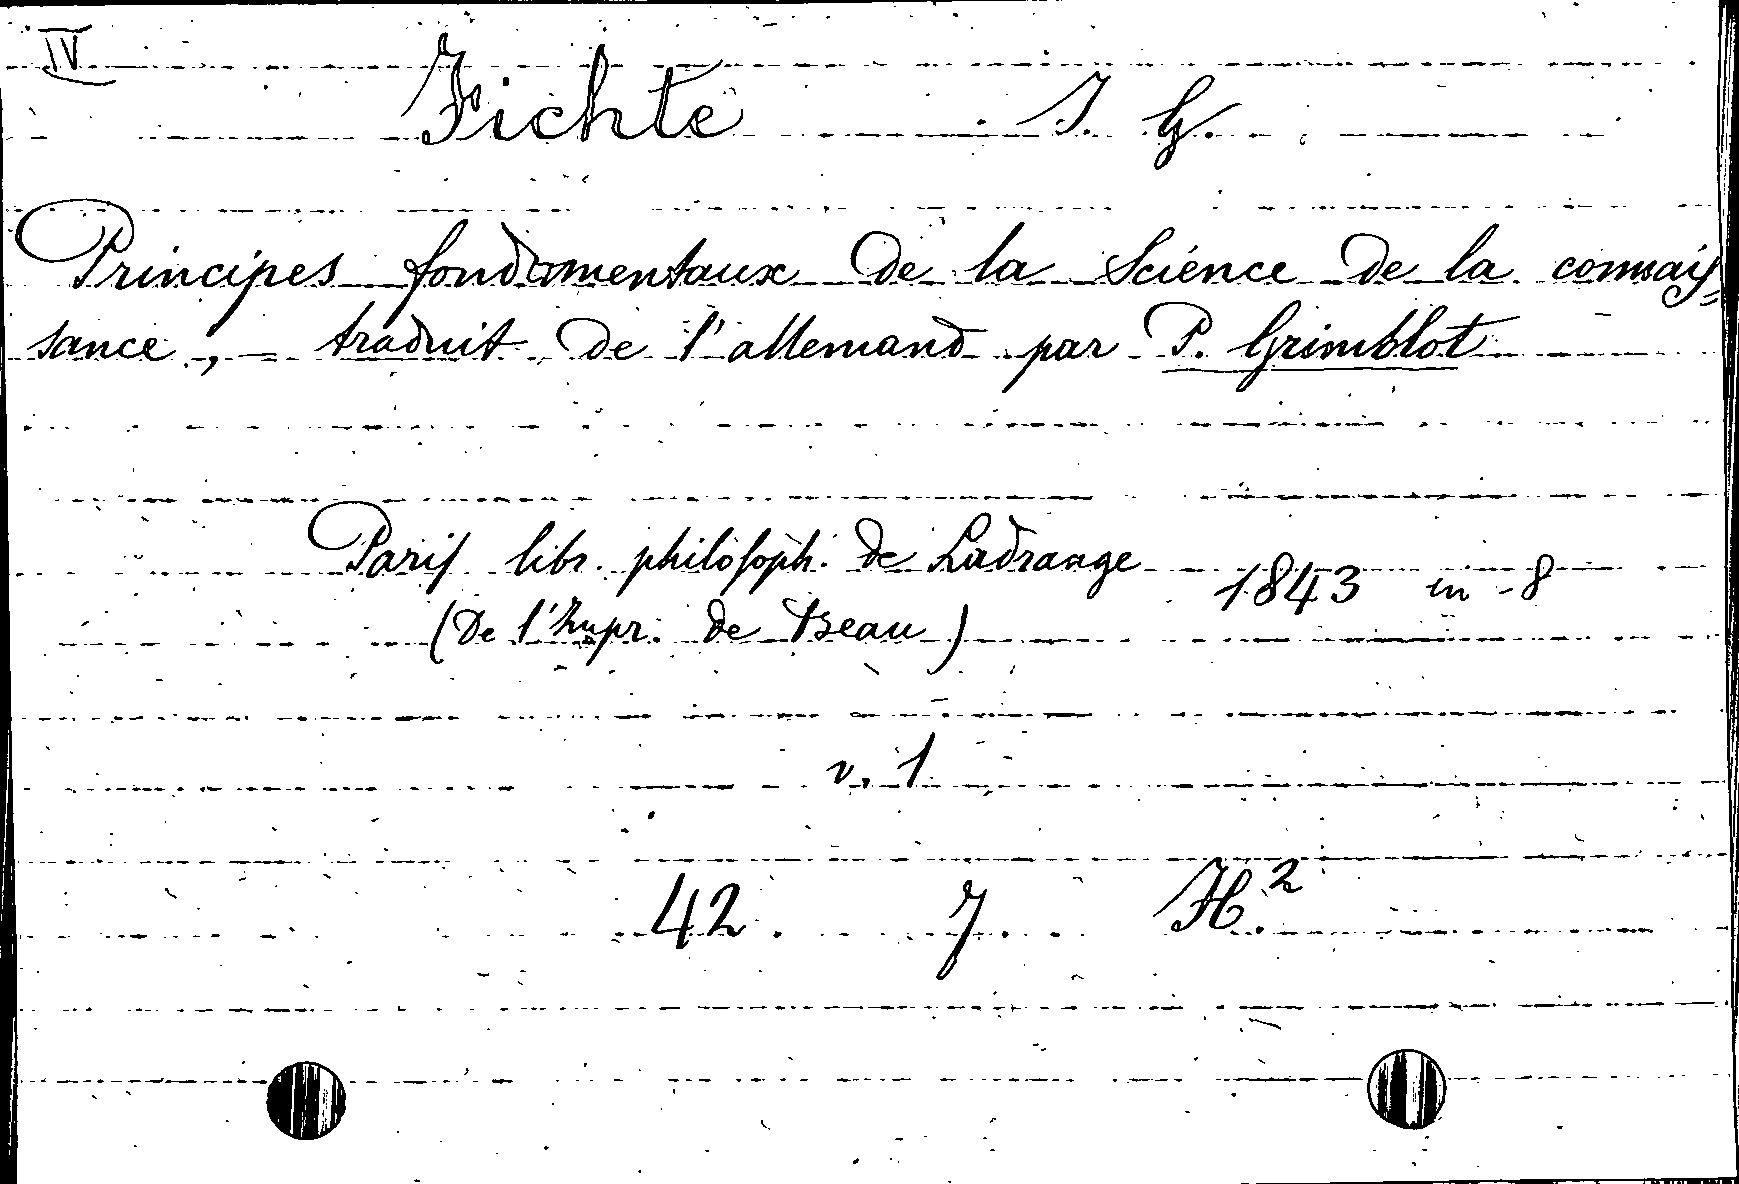 IV
Fichte J. G.
Principes fondamentaux de la Science de la connais=
sance, traduit de l'allemand par P. Grimblot
Paris libr. philosoph. de Ladrange 1843 in-8
(De l'Impr. de Beau)
v. 1
42. 7. H.²